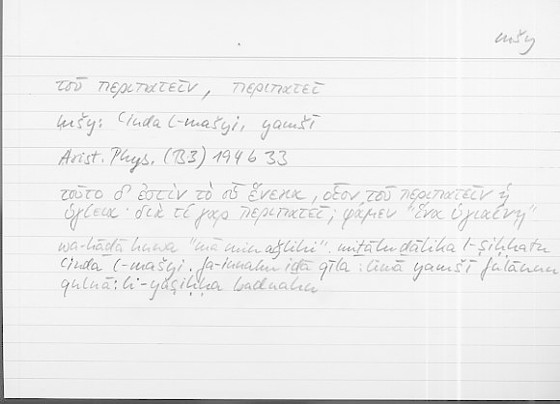 mšy
τοῦ περιπατεῖν, περιπατεῖ
mšy: ʿinda l-mašyi, yamšī
Arist. Phys. (B3) 194b 33
τοῦτο δ' ἐστὶν τὸ οὗ ἕνεκα, οἷον τοῦ περιπατεῖν ἡ
ὑγίεια· διὰ τί γὰρ περιπατεῖ; φάμεν "ἵνα ὑγιαίνῃ"
wa-hāḏā huwa "mā min aǧlihi". miṯālu ḏālika ṣ-ṣiḥḥatu
ʿinda l-mašyi. fa-innahu iḏā qīla: limā yamšī fulānun
qulnā: li-yaṣiḥḥa badnuhu